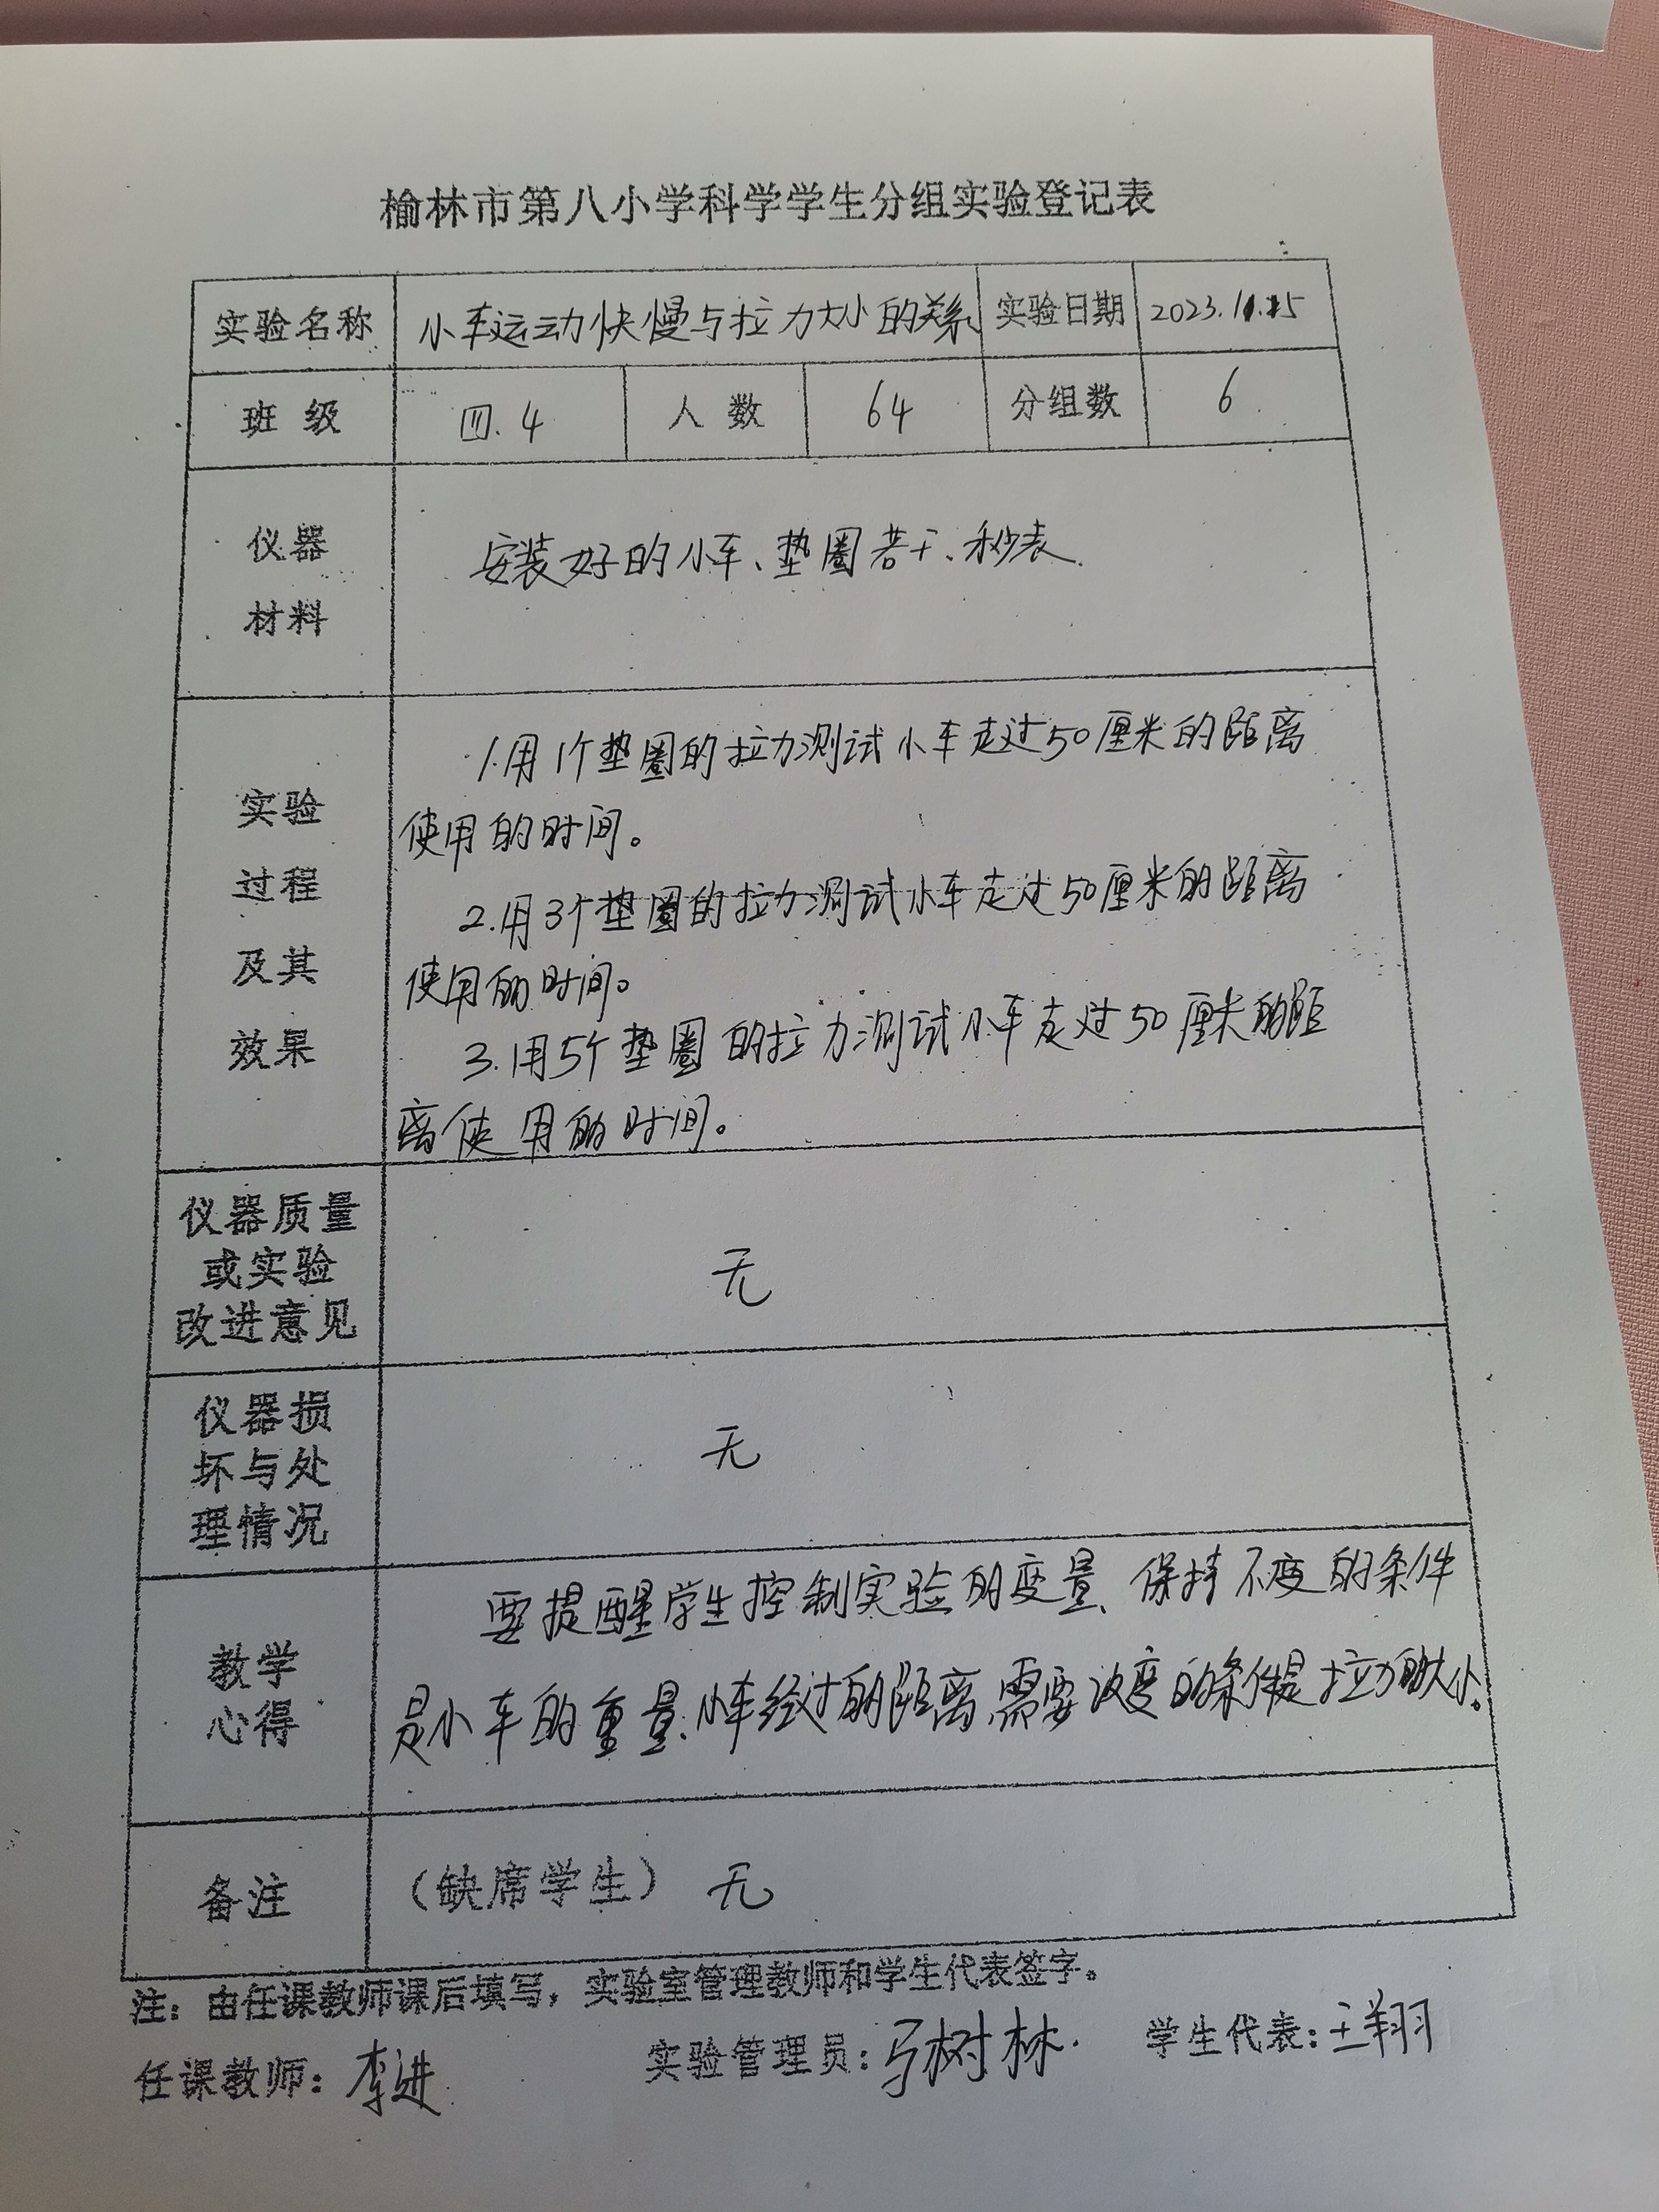 榆林市第八小学科学学生分组实验登记表
实验名称 小车运动快慢与拉力大小的关系 实验日期 2023.11.15
班级 四.4 人数 64 分组数 6
仪器
材料
安装好的小车、垫圈若干、秒表.
实验
过程
及其
效果
1.用1个垫圈的拉力测试小车走过50厘米的距离
使用的时间。
2.用3个垫圈的拉力测试小车走过50厘米的距离
使用的时间。
3.用5个垫圈的拉力测试小车走过50厘米的距
离使用的时间。
仪器质量
或实验
改进意见
无
仪器损
坏与处
理情况
无
教学
心得
要提醒学生控制实验的变量、保持不变的条件
是小车的重量、小车经过的距离,需要改变的条件是拉力的大小。
备注 (缺席学生) 无
注:由任课教师课后填写,实验室管理教师和学生代表签字。
任课教师:李进 实验管理员:马树林. 学生代表:王翔